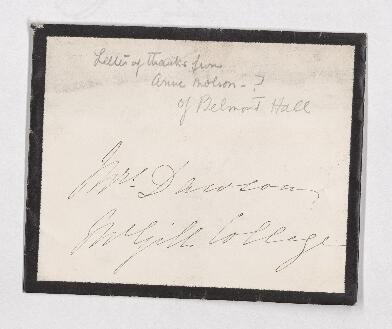 Letter of thanks from
Anne Molson - ?
of Belmont Hall
Mrs. Dawson,
McGill College